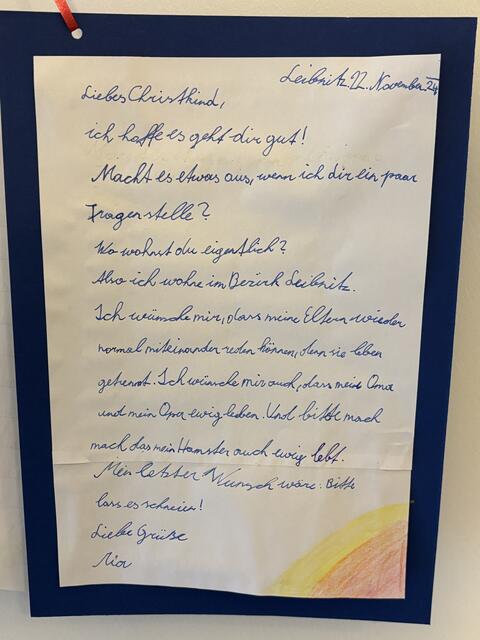 Leibnitz. 22. November 24
Liebes Christkind,
ich hoffe es geht dir gut!
Macht es etwas aus, wenn ich dir ein paar
Fragen stelle?
Wo wohnst du eigentlich?
Also ich wohne im Bezirk Leibnitz.
Ich wünsche mir, dass meine Eltern wieder
normal miteinander reden können, denn sie leben
getrennt. Ich wünsche mir auch, dass meine Oma
und mein Opa ewig leben. Und bitte mach
mach das mein Hamster auch ewig lebt.
Mein letzter Wunsch wäre: Bitte
lass es schneien!
Liebe Grüße